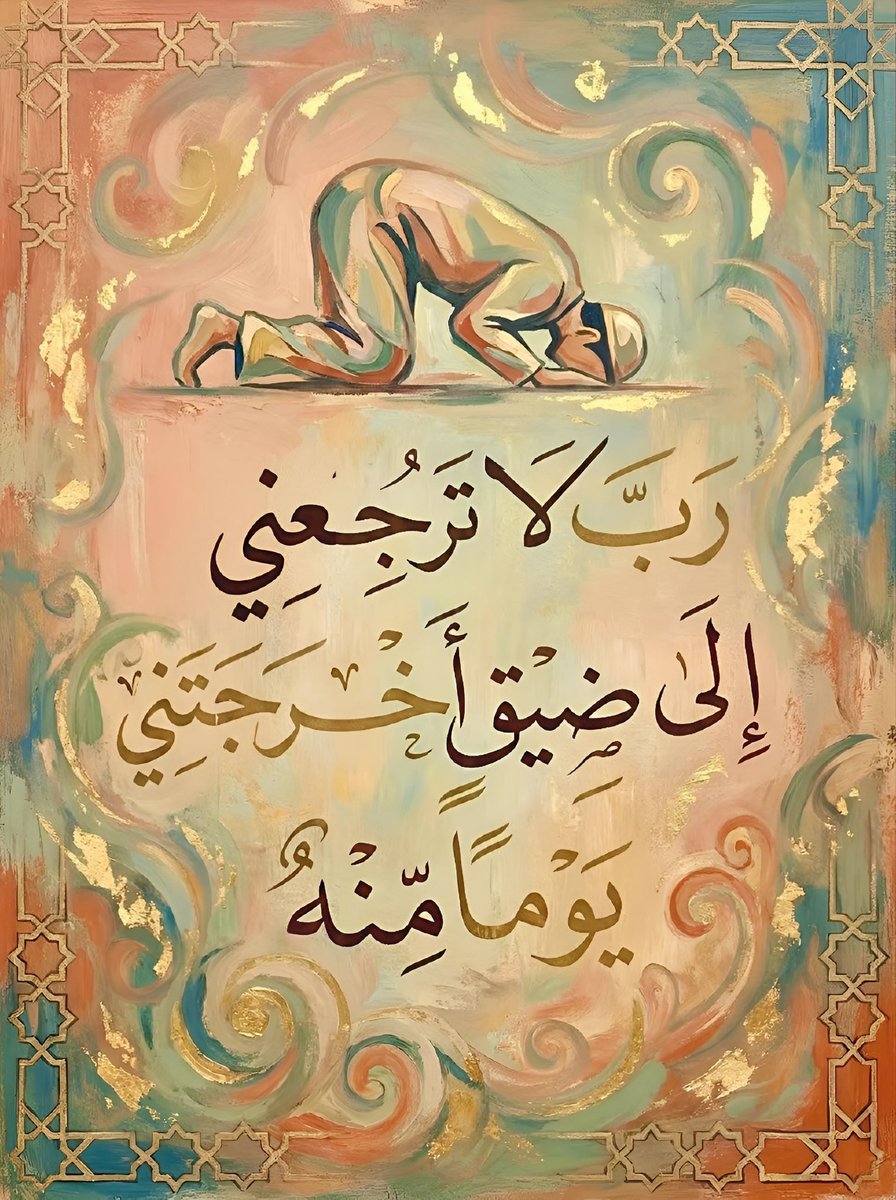 رَبَّ لَا تَرَجُعِنِي
إِلَى ضِيْقٍ أَخْرَجَتَنِي
يَوْمًا مِّنْهُ